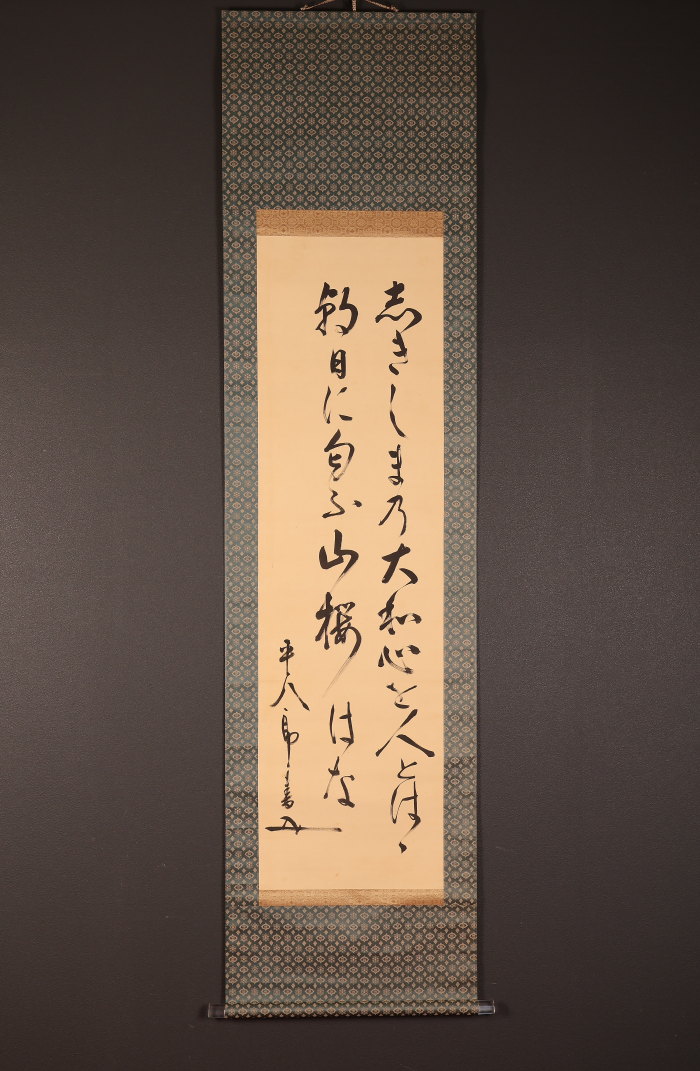 志きしま乃大和心を人とはゝ
朝日に匂ふ山桜はな
平八郎書